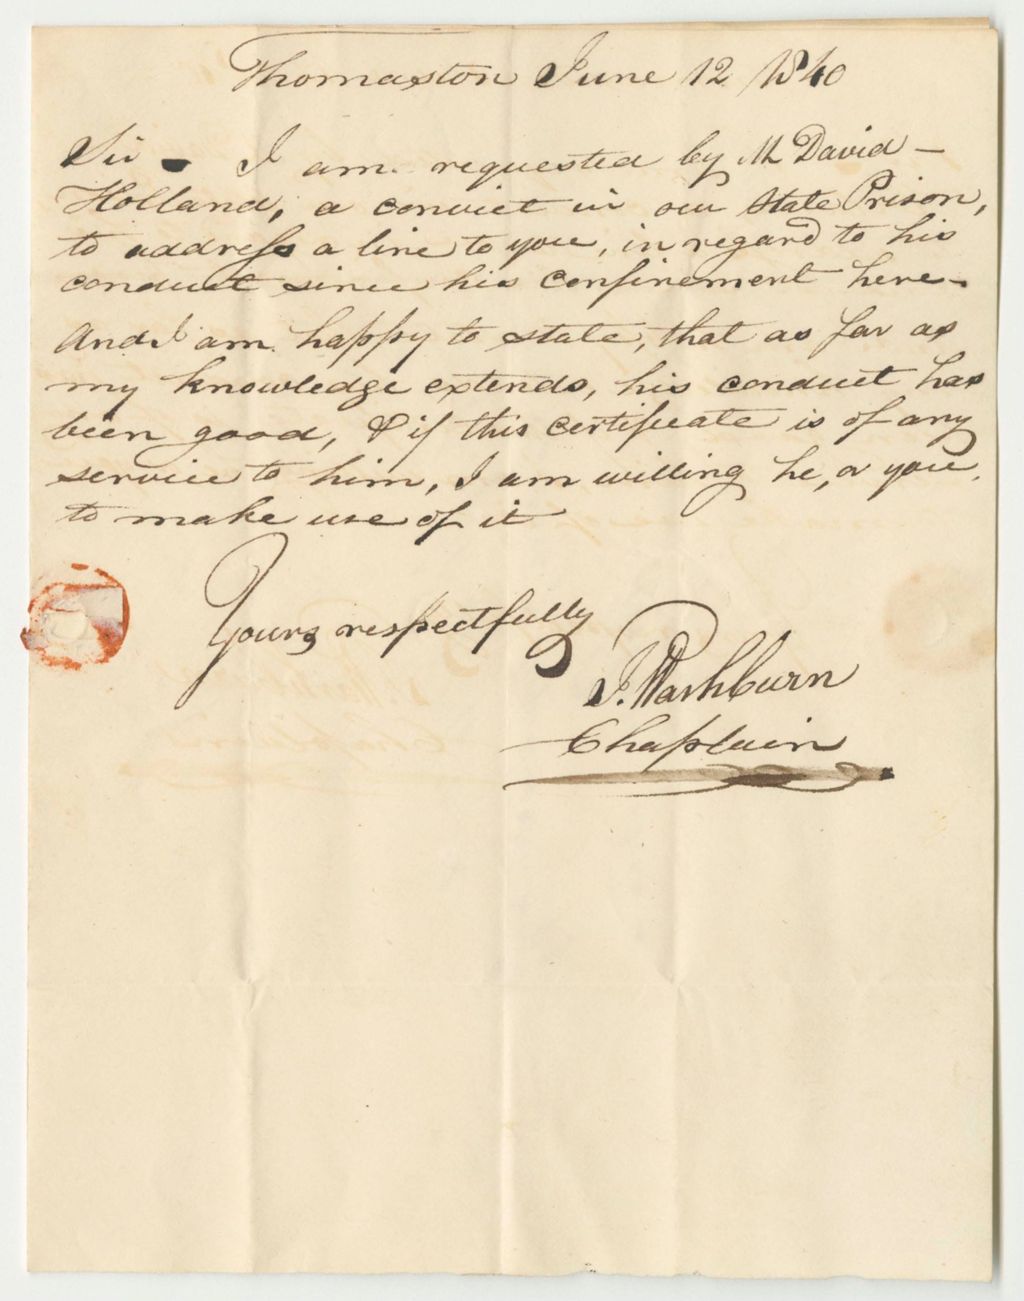 Thomaston June 12 1840
Sir - I am requested by Mr David -
Holland, a convict in our State Prison,
to address a line to you, in regard to his
conduct since his confinement here -
And I am happy to state, that as far as
my knowledge extends, his conduct has
been good, & if this certificate is of any
service to him, I am willing he, or you,
to make use of it
Yours respectfully
J. Washburn
Chaplain